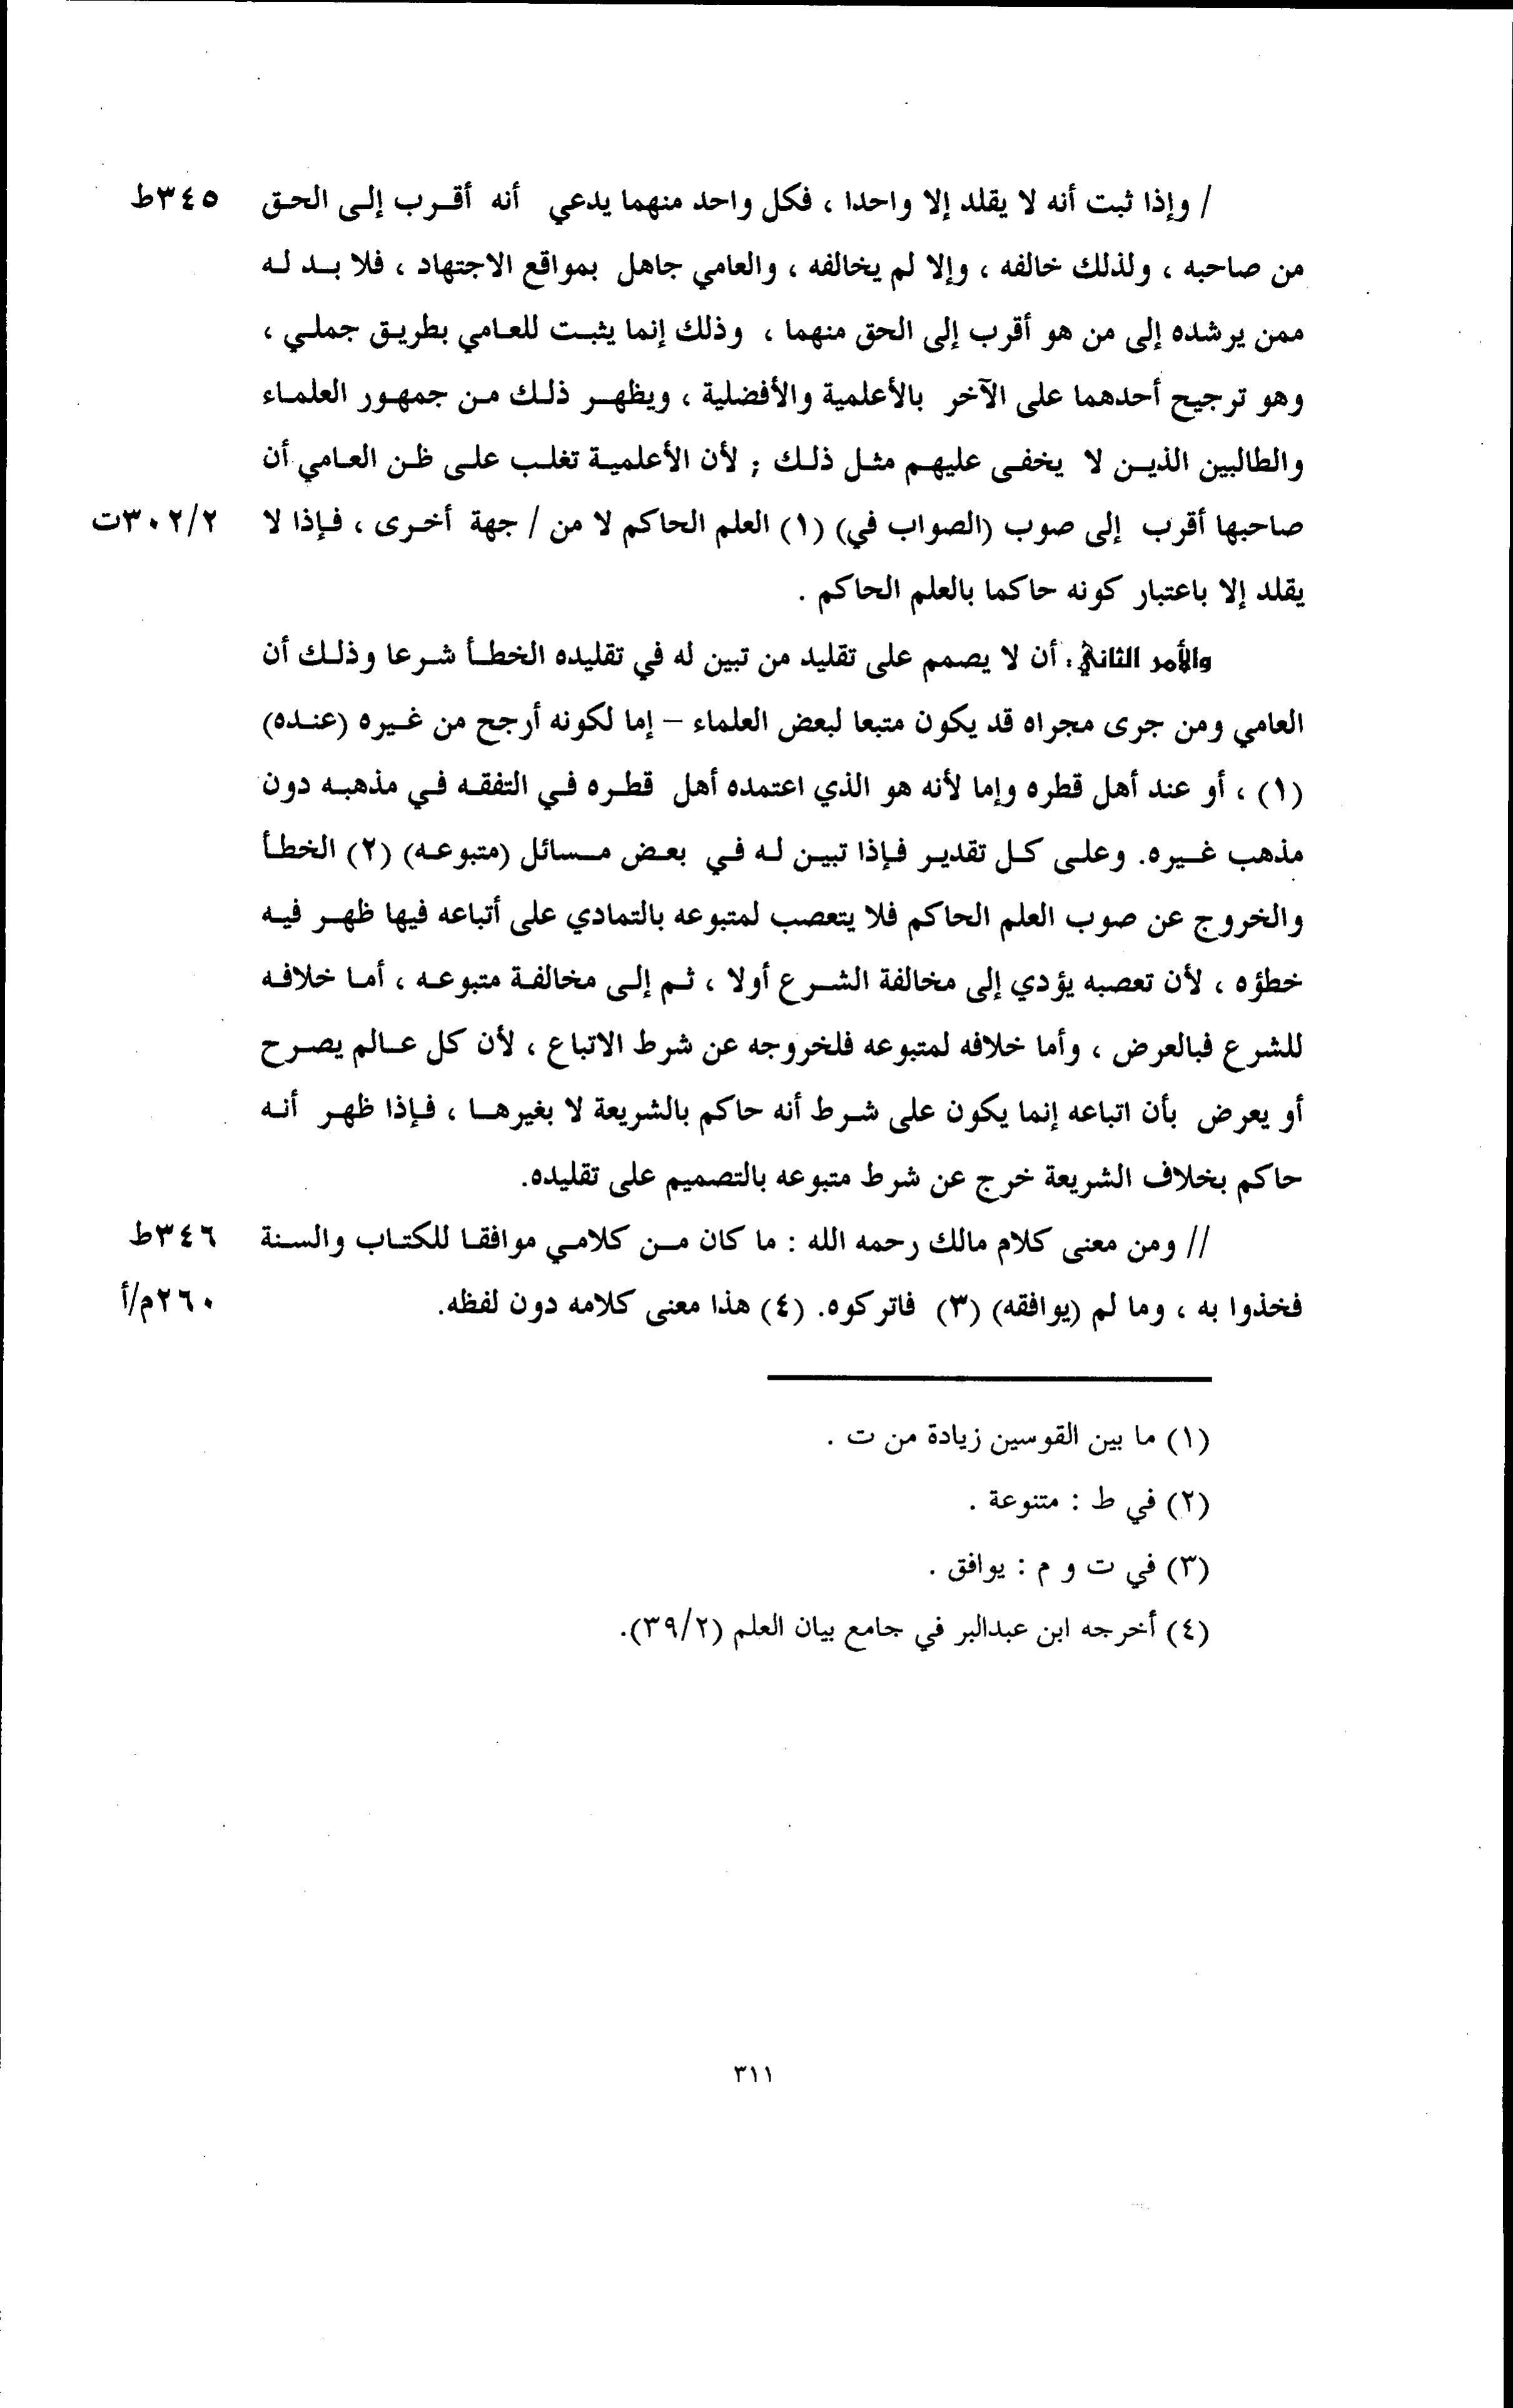 / وإذا ثبت أنه لا يقلد إلا واحدا ، فكل واحد منهما يدعي أنه أقرب إلى الحق ٣٤٥ط
من صاحبه ، ولذلك خالفه ، وإلا لم يخالفه ، والعامي جاهل بمواقع الاجتهاد ، فلا بد له
ممن يرشده إلى من هو أقرب إلى الحق منهما ، وذلك إنما يثبت للعامي بطريق جملي ،
وهو ترجيح أحدهما على الآخر بالأعلمية والأفضلية ، ويظهر ذلك من جمهور العلماء
والطالبين الذين لا يخفى عليهم مثل ذلك ; لأن الأعلمية تغلب على ظن العامي أن
صاحبها أقرب إلى صوب (الصواب في) (١) العلم الحاكم لا من / جهة أخرى ، فإذا لا ٣٠٢/٢ت
يقلد إلا باعتبار كونه حاكما بالعلم الحاكم .
والأمر الثاني: أن لا يصمم على تقليد من تبين له في تقليده الخطأ شرعا وذلك أن
العامي ومن جرى مجراه قد يكون متبعا لبعض العلماء – إما لكونه أرجح من غيره (عنده)
(١) ، أو عند أهل قطره وإما لأنه هو الذي اعتمده أهل قطره في التفقه في مذهبه دون
مذهب غيره. وعلى كل تقدير فإذا تبين له في بعض مسائل (متبوعه) (٢) الخطأ
والخروج عن صوب العلم الحاكم فلا يتعصب لمتبوعه بالتمادي على أتباعه فيها ظهر فيه
خطؤه ، لأن تعصبه يؤدي إلى مخالفة الشرع أولا ، ثم إلى مخالفة متبوعه ، أما خلافه
للشرع فبالعرض ، وأما خلافه لمتبوعه فلخروجه عن شرط الاتباع ، لأن كل عالم يصرح
أو يعرض بأن اتباعه إنما يكون على شرط أنه حاكم بالشريعة لا بغيرها ، فإذا ظهر أنه
حاكم بخلاف الشريعة خرج عن شرط متبوعه بالتصميم على تقليده.
// ومن معنى كلام مالك رحمه الله : ما كان من كلامي موافقا للكتاب والسنة ٣٤٦ط
فخذوا به ، وما لم (يوافقه) (٣) فاتركوه. (٤) هذا معنى كلامه دون لفظه. ٢٦٠م/أ
(١) ما بين القوسين زيادة من ت .
(٢) في ط : متنوعة .
(٣) في ت و م : يوافق .
(٤) أخرجه ابن عبدالبر في جامع بيان العلم (٣٩/٢).
٣١١